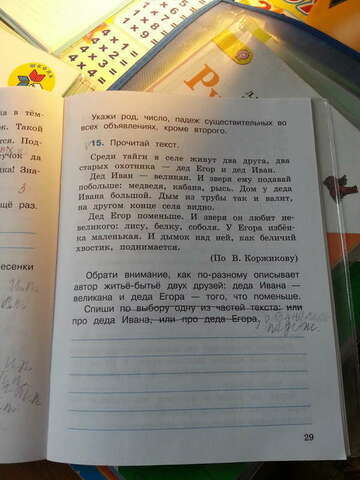 ШКОЛА
1 × 4 =
2 × 4 =
3 × 4 =
4 × 4 =
Ру
Укажи род, число, падеж существительных во
всех объявлениях, кроме второго.
15. Прочитай текст.
Среди тайги в селе живут два друга, два
старых охотника — дед Егор и дед Иван.
Дед Иван — великан. И зверя ему подавай
побольше: медведя, кабана, рысь. Дом у деда
Ивана большой. Дым из трубы так и валит,
на другом конце села видно.
Дед Егор поменьше. И зверя он любит не-
великого: лису, белку, соболя. У Егора избён-
ка маленькая. И дымок над ней, как беличий
хвостик, поднимается.
(По В. Коржикову)
Обрати внимание, как по-разному описывает
автор житьё-бытьё двух друзей: деда Ивана —
великана и деда Егора — того, что поменьше.
Спиши по выбору одну из частей текста: или
про деда Ивана, или про деда Егора.
падеж.
29
а в тём-
ок. Такой
тся. Под-
сучок да
ка! Зна-
3
щё раз.
есенки